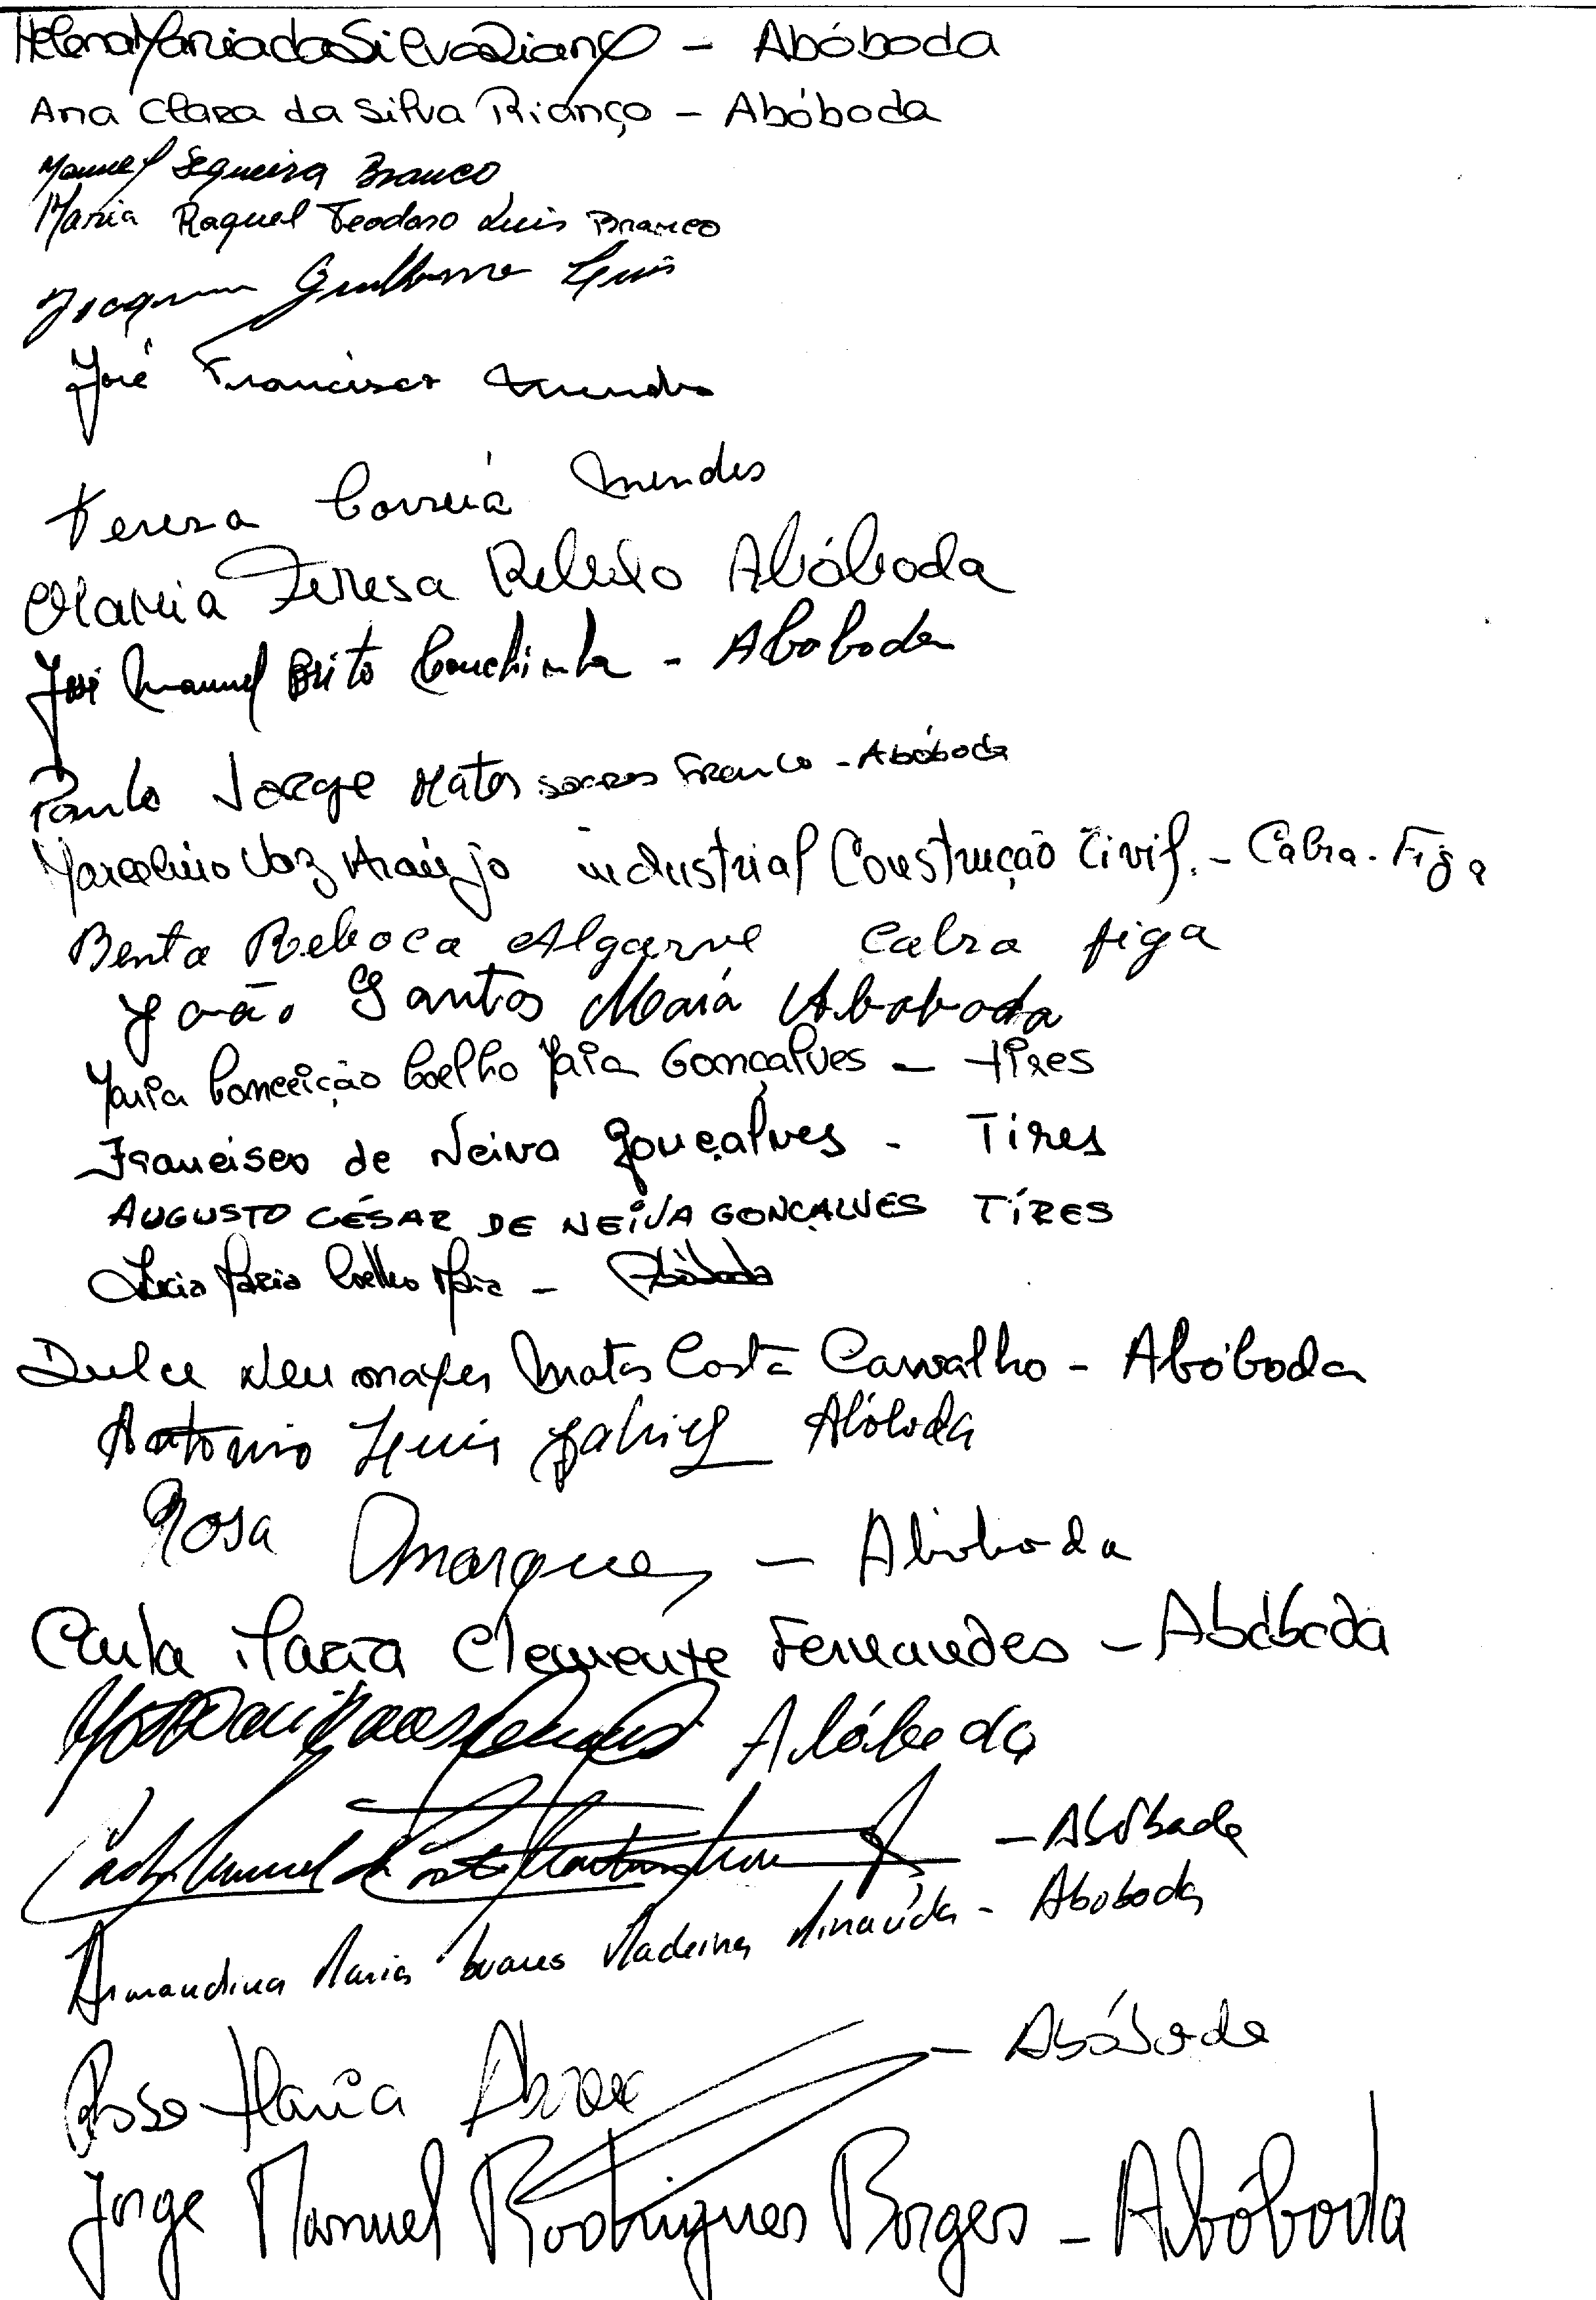 Helena Maria da Silva Rianço - Abóboda
Ana Clara da Silva Rianço - Abóboda
Manuel Sequeira Branco
Maria Raquel Teodoro Luis Branco
Joaquim Guilherme Luis
José Francisco Mendes
Tereza Correia Mendes
Maria Teresa Rebelo Abóboda
José Manuel Brito Conchinha - Aboboda
Paulo Jorge Matos Soares Franco - Abóboda
Marcelino Vaz Araújo industrial Construção Civil. - Cabra-Figa
Benta Reboca Algarve Cabra figa
João Santos Maia Aboboda
Maria Conceição Coelho Maia Gonçalves - Tires
Francisco de Neiva Gonçalves - Tires
AUGUSTO CÉSAR DE NEIVA GONÇALVES TIRES
Lucia Maria Coelho Maia - Abóboda
Dulce Matos Costa Carvalho - Abóboda
Antonio Luis Gabriel Abóboda
Rosa Marques - Abóboda
Carla Maria Clemente Fernandes - Abóboda
Abóboda
Manuel da Costa - Abóboda
Armandina Maria Soares Madeira - Aboboda
Rosa Maria - Abóboda
Jorge Manuel Rodrigues Borges - Abóboda